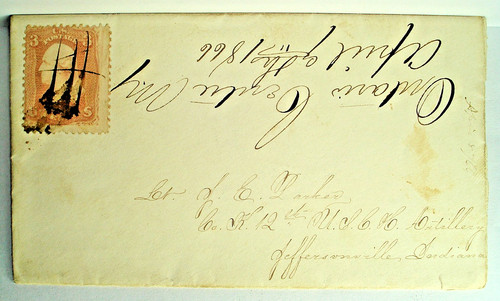 3
POSTAGE
Ontario Centre NY
April 9th 1866
Lt. S. C. Parker
Co. K. 12th U.S.C.H. Artillery
Jeffersonville, Indiana